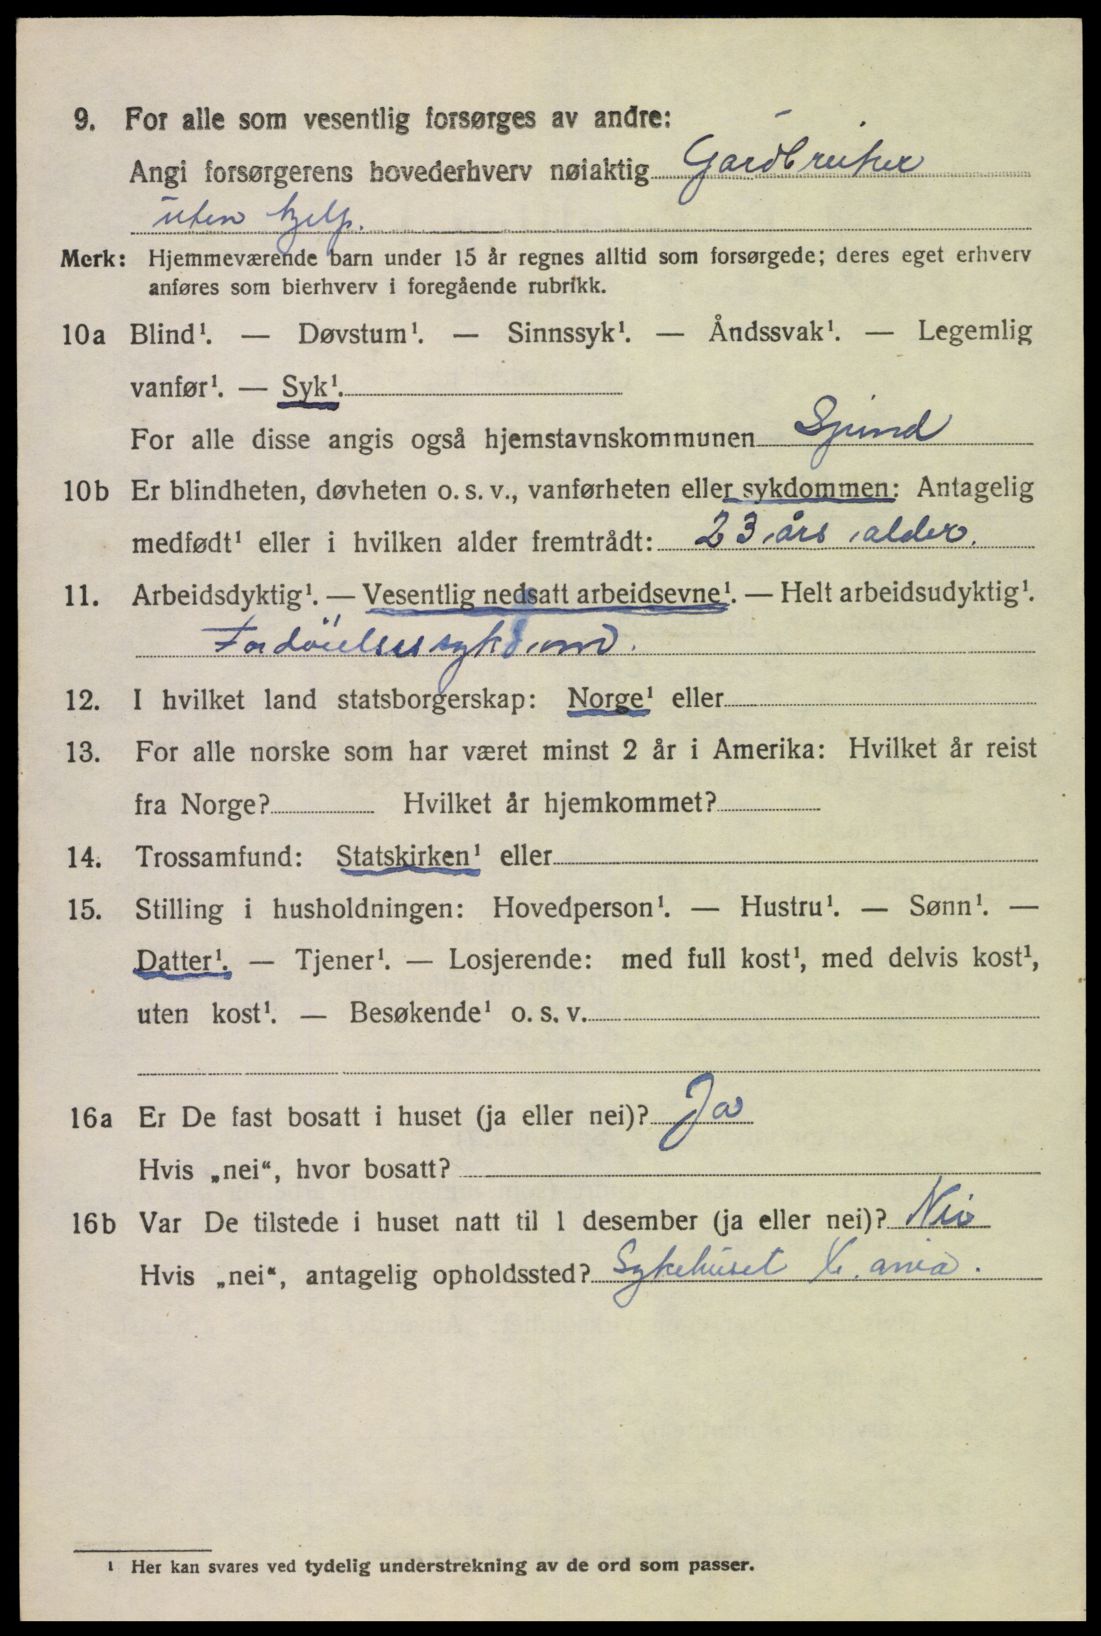 9. For alle som vesentlig forsørges av andre:
Angi forsørgerens hovederhverv nøiaktig Gardbruker
uten hjelp.
Merk: Hjemmeværende barn under 15 år regnes alltid som forsørgede; deres eget erhverv
anføres som bierhverv i foregående rubrikk.
10a Blind¹. — Døvstum¹. — Sinnssyk¹. — Åndssvak¹. — Legemlig
vanfør¹. — Syk¹.
For alle disse angis også hjemstavnskommunen Spind
10b Er blindheten, døvheten o. s. v., vanførheten eller sykdommen: Antagelig
medfødt¹ eller i hvilken alder fremtrådt: 23 års alder.
11. Arbeidsdyktig¹. — Vesentlig nedsatt arbeidsevne¹. — Helt arbeidsudyktig¹.
Fordöielsessykdom.
12. I hvilket land statsborgerskap: Norge¹ eller
13. For alle norske som har været minst 2 år i Amerika: Hvilket år reist
fra Norge? Hvilket år hjemkommet?
14. Trossamfund: Statskirken¹ eller
15. Stilling i husholdningen: Hovedperson¹. — Hustru¹. — Sønn¹. —
Datter¹. — Tjener¹. — Losjerende: med full kost¹, med delvis kost¹,
uten kost¹. — Besøkende¹ o. s. v.
16a Er De fast bosatt i huset (ja eller nei)? Ja
Hvis „nei“, hvor bosatt?
16b Var De tilstede i huset natt til 1 desember (ja eller nei)? Nei
Hvis „nei“, antagelig opholdssted? Sykehuset X. ania.
¹ Her kan svares ved tydelig understrekning av de ord som passer.